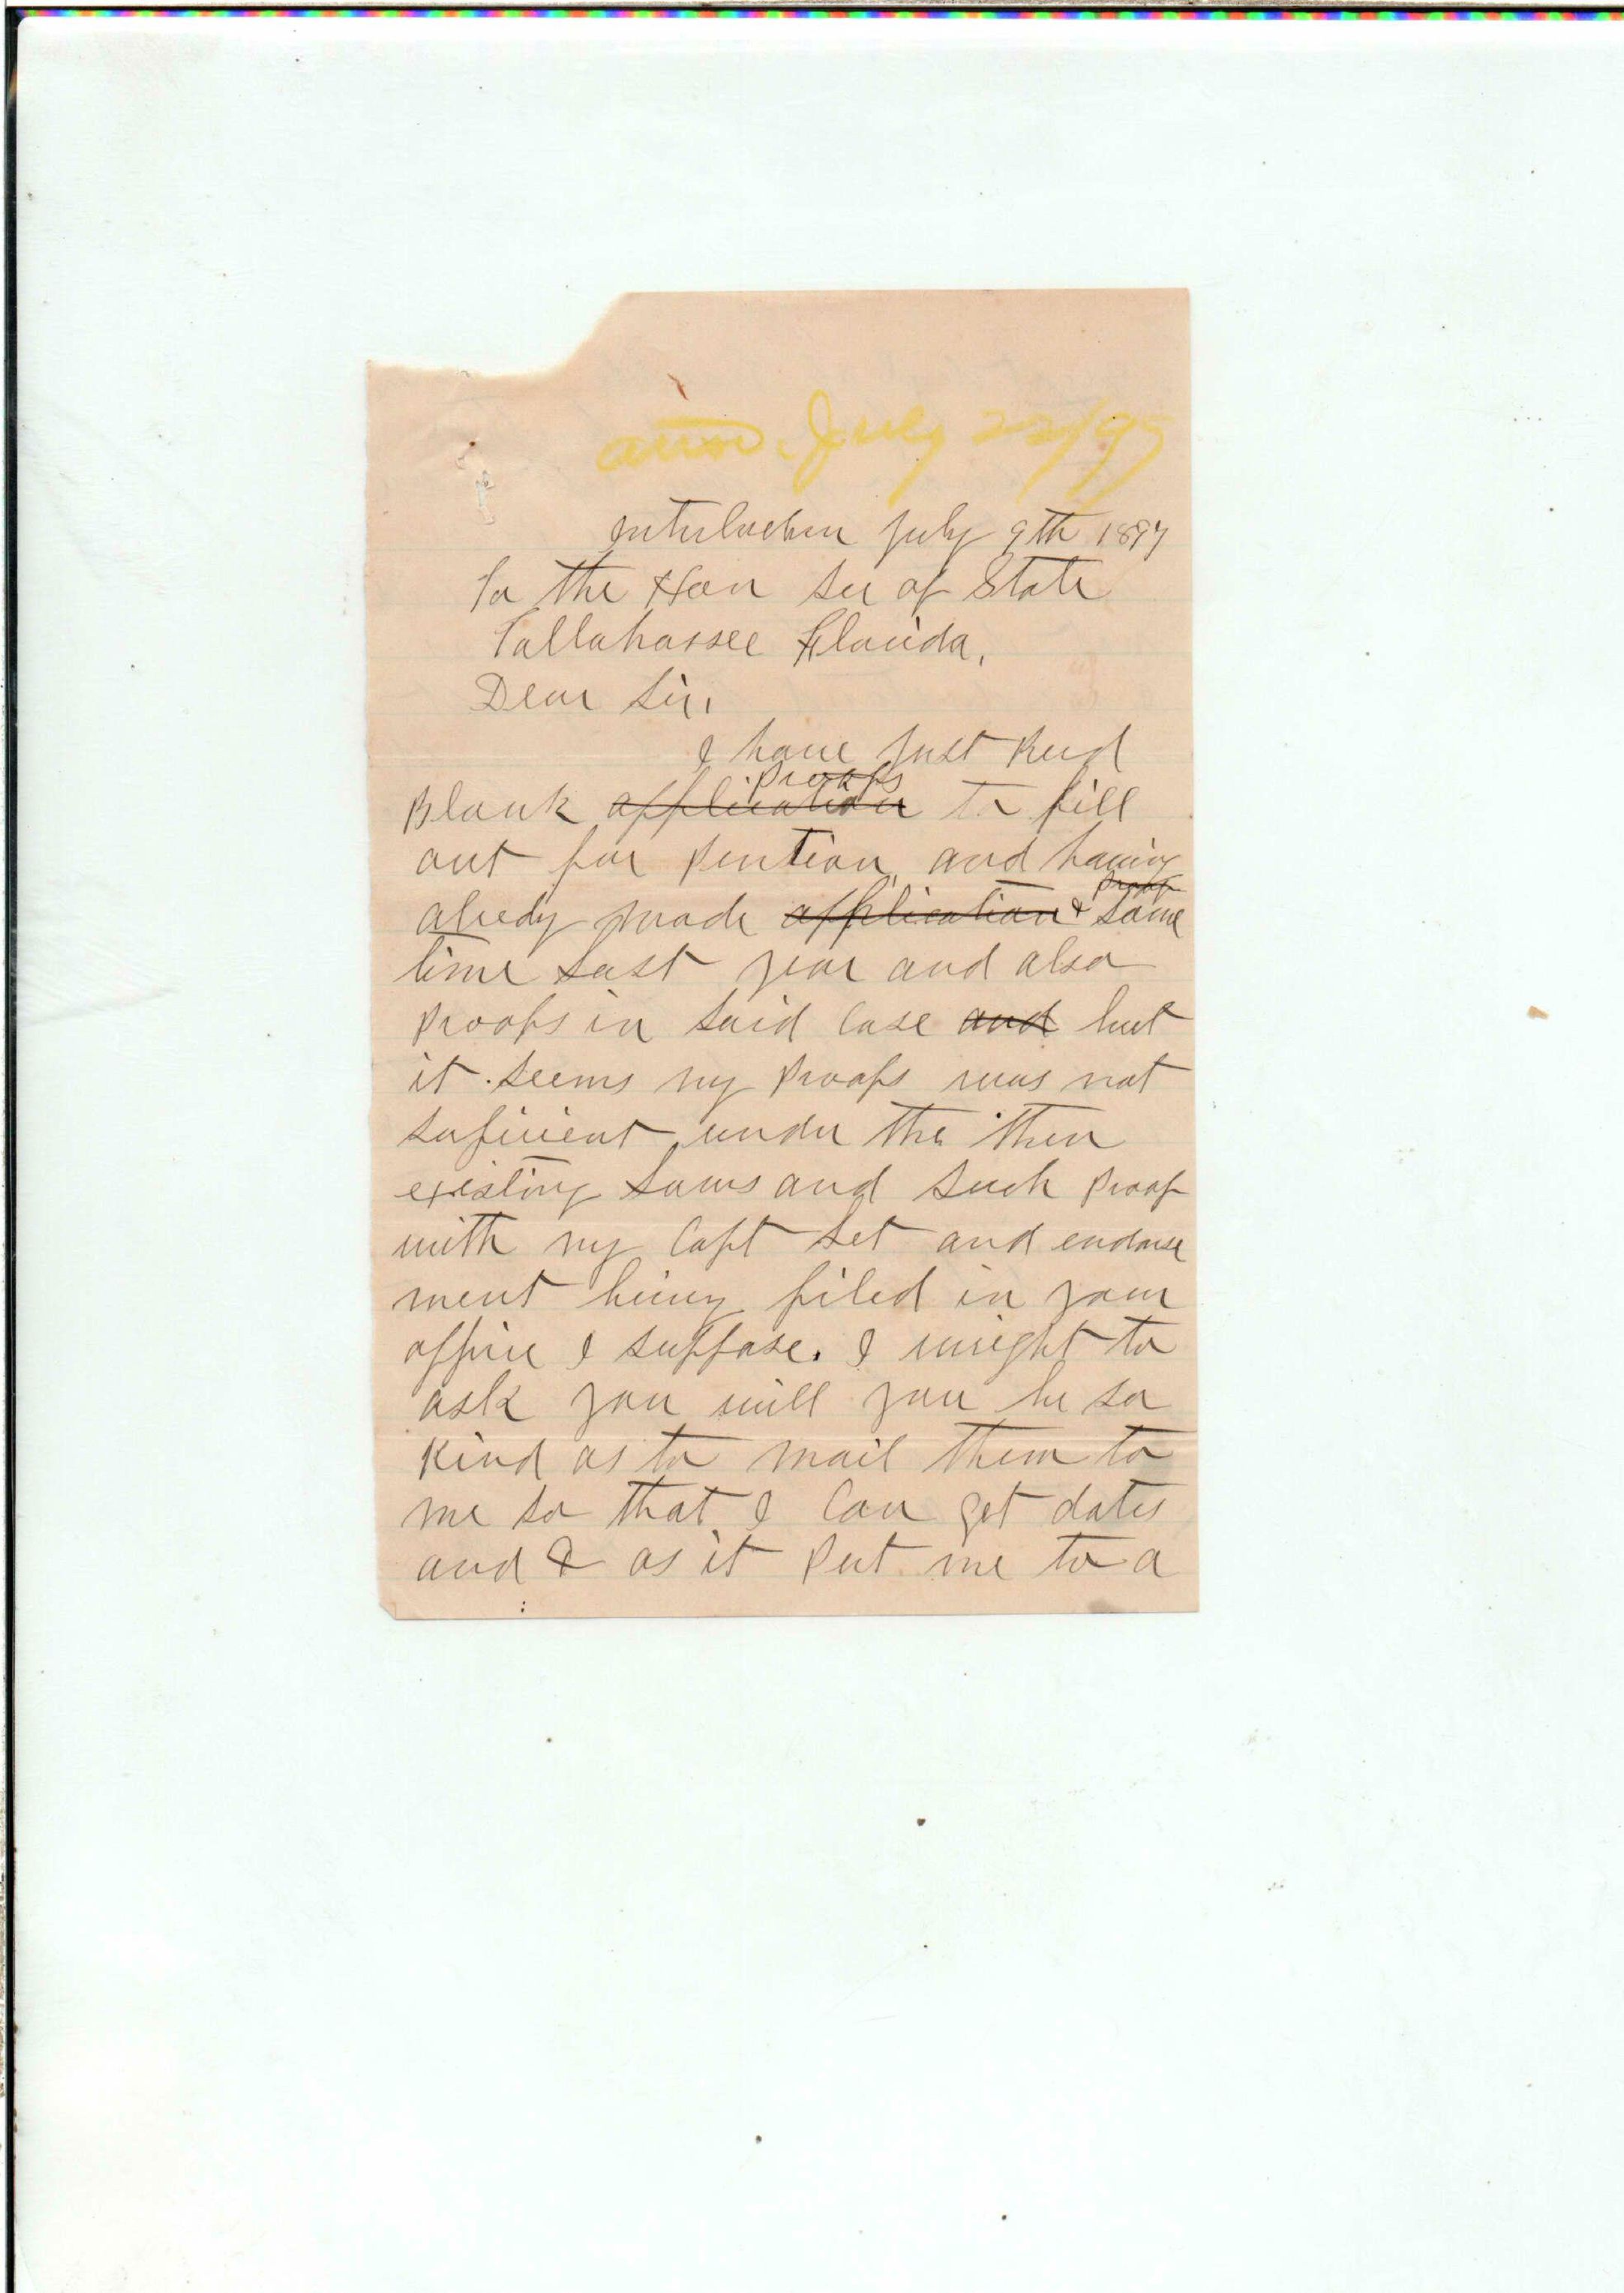 ansd. July 22/97
Interlachen July 9th 1897
To the Hon Sec of State
Tallahassee Florida,
Dear Sir,
I have Just Recd
proofs
Blank application to fill
out for pention and having
proof
alredy made application & some
time Last year and also
proofs in said Case and but
it seems my proofs was not
suficient under the then
existing Laws and such proof
with my Capt Let and endorse
ment being filed in your
office I suppose. I wright to
ask you will you be so
Kind as to mail them to
me so that I Can get dates
and & as it put me to a